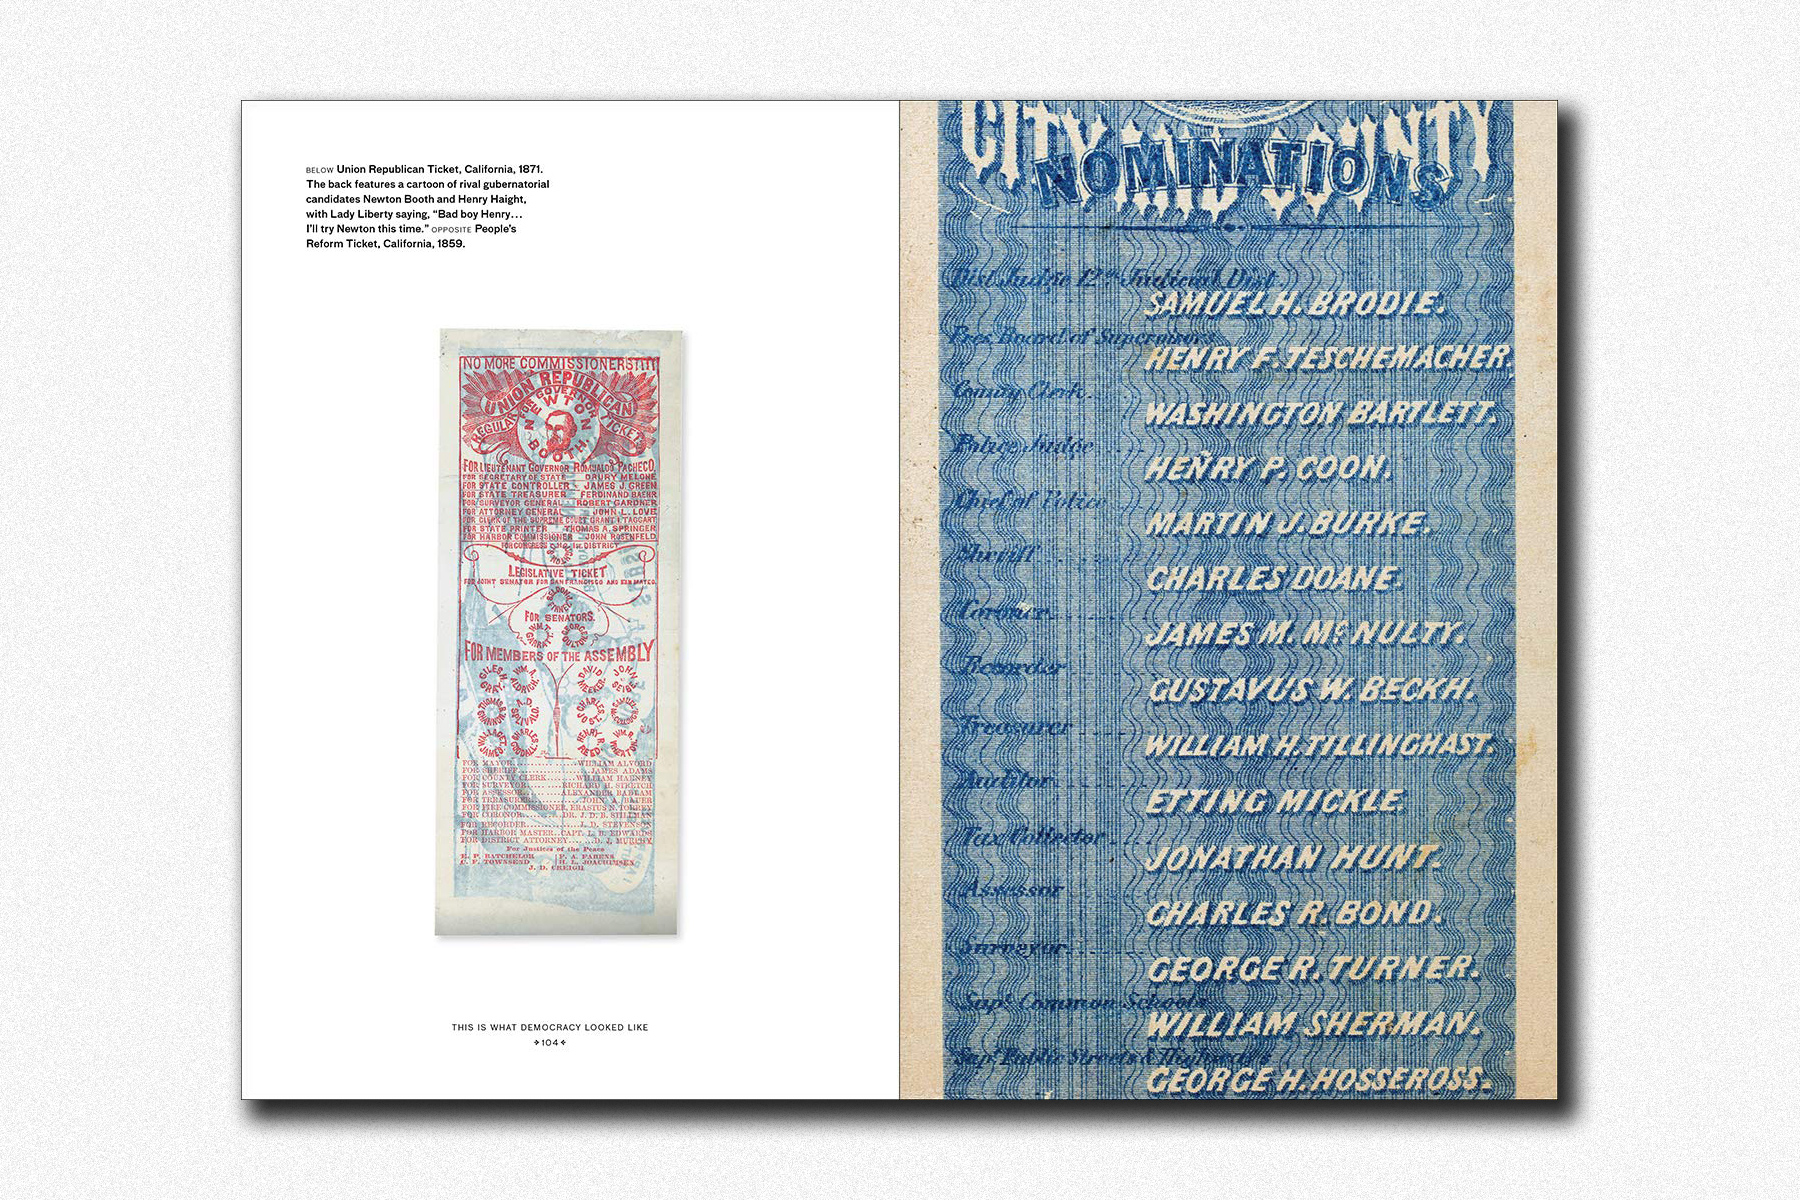 BELOW Union Republican Ticket, California, 1871.
The back features a cartoon of rival gubernatorial
candidates Newton Booth and Henry Haight,
with Lady Liberty saying, “Bad boy Henry…
I’ll try Newton this time.” OPPOSITE People’s
Reform Ticket, California, 1859.
NO MORE COMMISSIONERS!
UNION REPUBLICAN
REGULAR TICKET
FOR GOVERNOR
NEWTON
BOOTH
FOR LIEUTENANT GOVERNOR ROMUALDO PACHECO,
FOR SECRETARY OF STATE DRURY MELONE
FOR STATE CONTROLLER JAMES J. GREEN
FOR STATE TREASURER FERDINAND BAEHR
FOR SURVEYOR GENERAL ROBERT GARDNER
FOR ATTORNEY GENERAL JOHN L. LOVE
FOR CLERK OF THE SUPREME COURT GRANT I. TAGGART
FOR STATE PRINTER THOMAS A. SPRINGER
FOR HARBOR COMMISSIONER JOHN ROSENFELD
FOR CONGRESS DISTRICT
LEGISLATIVE TICKET
FOR JOINT SENATOR FOR SAN FRANCISCO AND SAN MATEO.
FOR SENATORS.
FOR MEMBERS OF THE ASSEMBLY
GILES H. GRAY.
WM. A. ALDRICH.
DAVID MEEKER.
JOHN
CHARLES JOST.
WALLACE
CHARLES GOODALL.
HENRY R. REED.
WM. R. WHEATON.
FOR MAYOR WILLIAM ALVORD
FOR SHERIFF JAMES ADAMS
FOR COUNTY CLERK WILLIAM HARNEY
FOR SURVEYOR RICHARD H. STRETCH
FOR ASSESSOR ALEXANDER BADLAM
FOR TREASURER JOHN A. BAUER
FOR FIRE COMMISSIONER, ERASTUS N. TORREY
FOR CORONOR DR. J. D. B. STILLMAN
FOR RECORDER J. D. STEVENSON
FOR HARBOR MASTER CAPT. L. B. EDWARDS
FOR DISTRICT ATTORNEY D. J. MURPHY
For Justices of the Peace
E. P. BATCHELOR F. A. FABENS
C. F. TOWNSEND H. L. JOACHIMSEN
J. D. CREIGH
THIS IS WHAT DEMOCRACY LOOKED LIKE
104
CITY COUNTY
NOMINATIONS
Dist. Judge 12th Judicial Dist.
SAMUEL H. BRODIE.
Pres. Board of Supervisors
HENRY F. TESCHEMACHER.
County Clerk.
WASHINGTON BARTLETT.
Police Judge
HENRY P. COON.
Chief of Police
MARTIN J. BURKE.
Sheriff
CHARLES DOANE.
Coroner
JAMES M. Mc NULTY.
Recorder
GUSTAVUS W. BECKH.
Treasurer
WILLIAM H. TILLINGHAST.
Auditor
ETTING MICKLE.
Tax Collector
JONATHAN HUNT.
Assessor
CHARLES R. BOND.
Surveyor
GEORGE R. TURNER.
Supt. Common Schools
WILLIAM SHERMAN.
Supt. Public Streets & Highways
GEORGE H. HOSSEROSS.